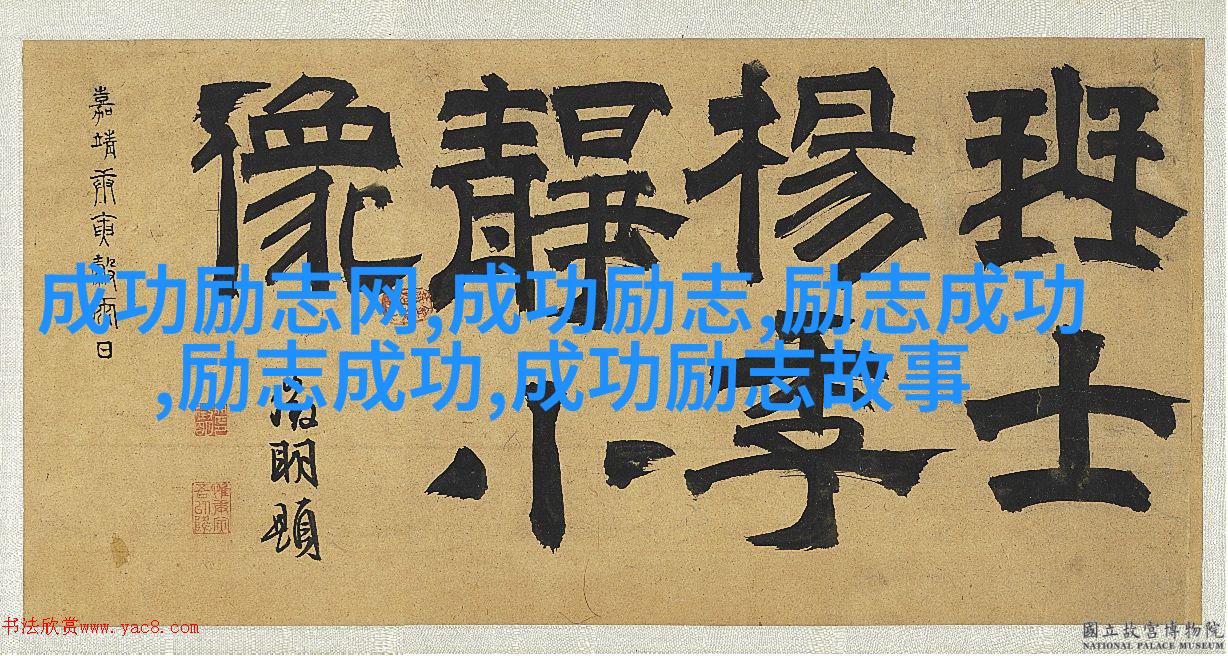 成功励志网,成功励志,励志成功
,励志成功,成功励志故事
士
楊季
靜小
像
嘉靖庚寅穀雨日
徵明題
书法欣赏www.yac8.com
國立故宮博物院
NATIONAL PALACE MUSEUM